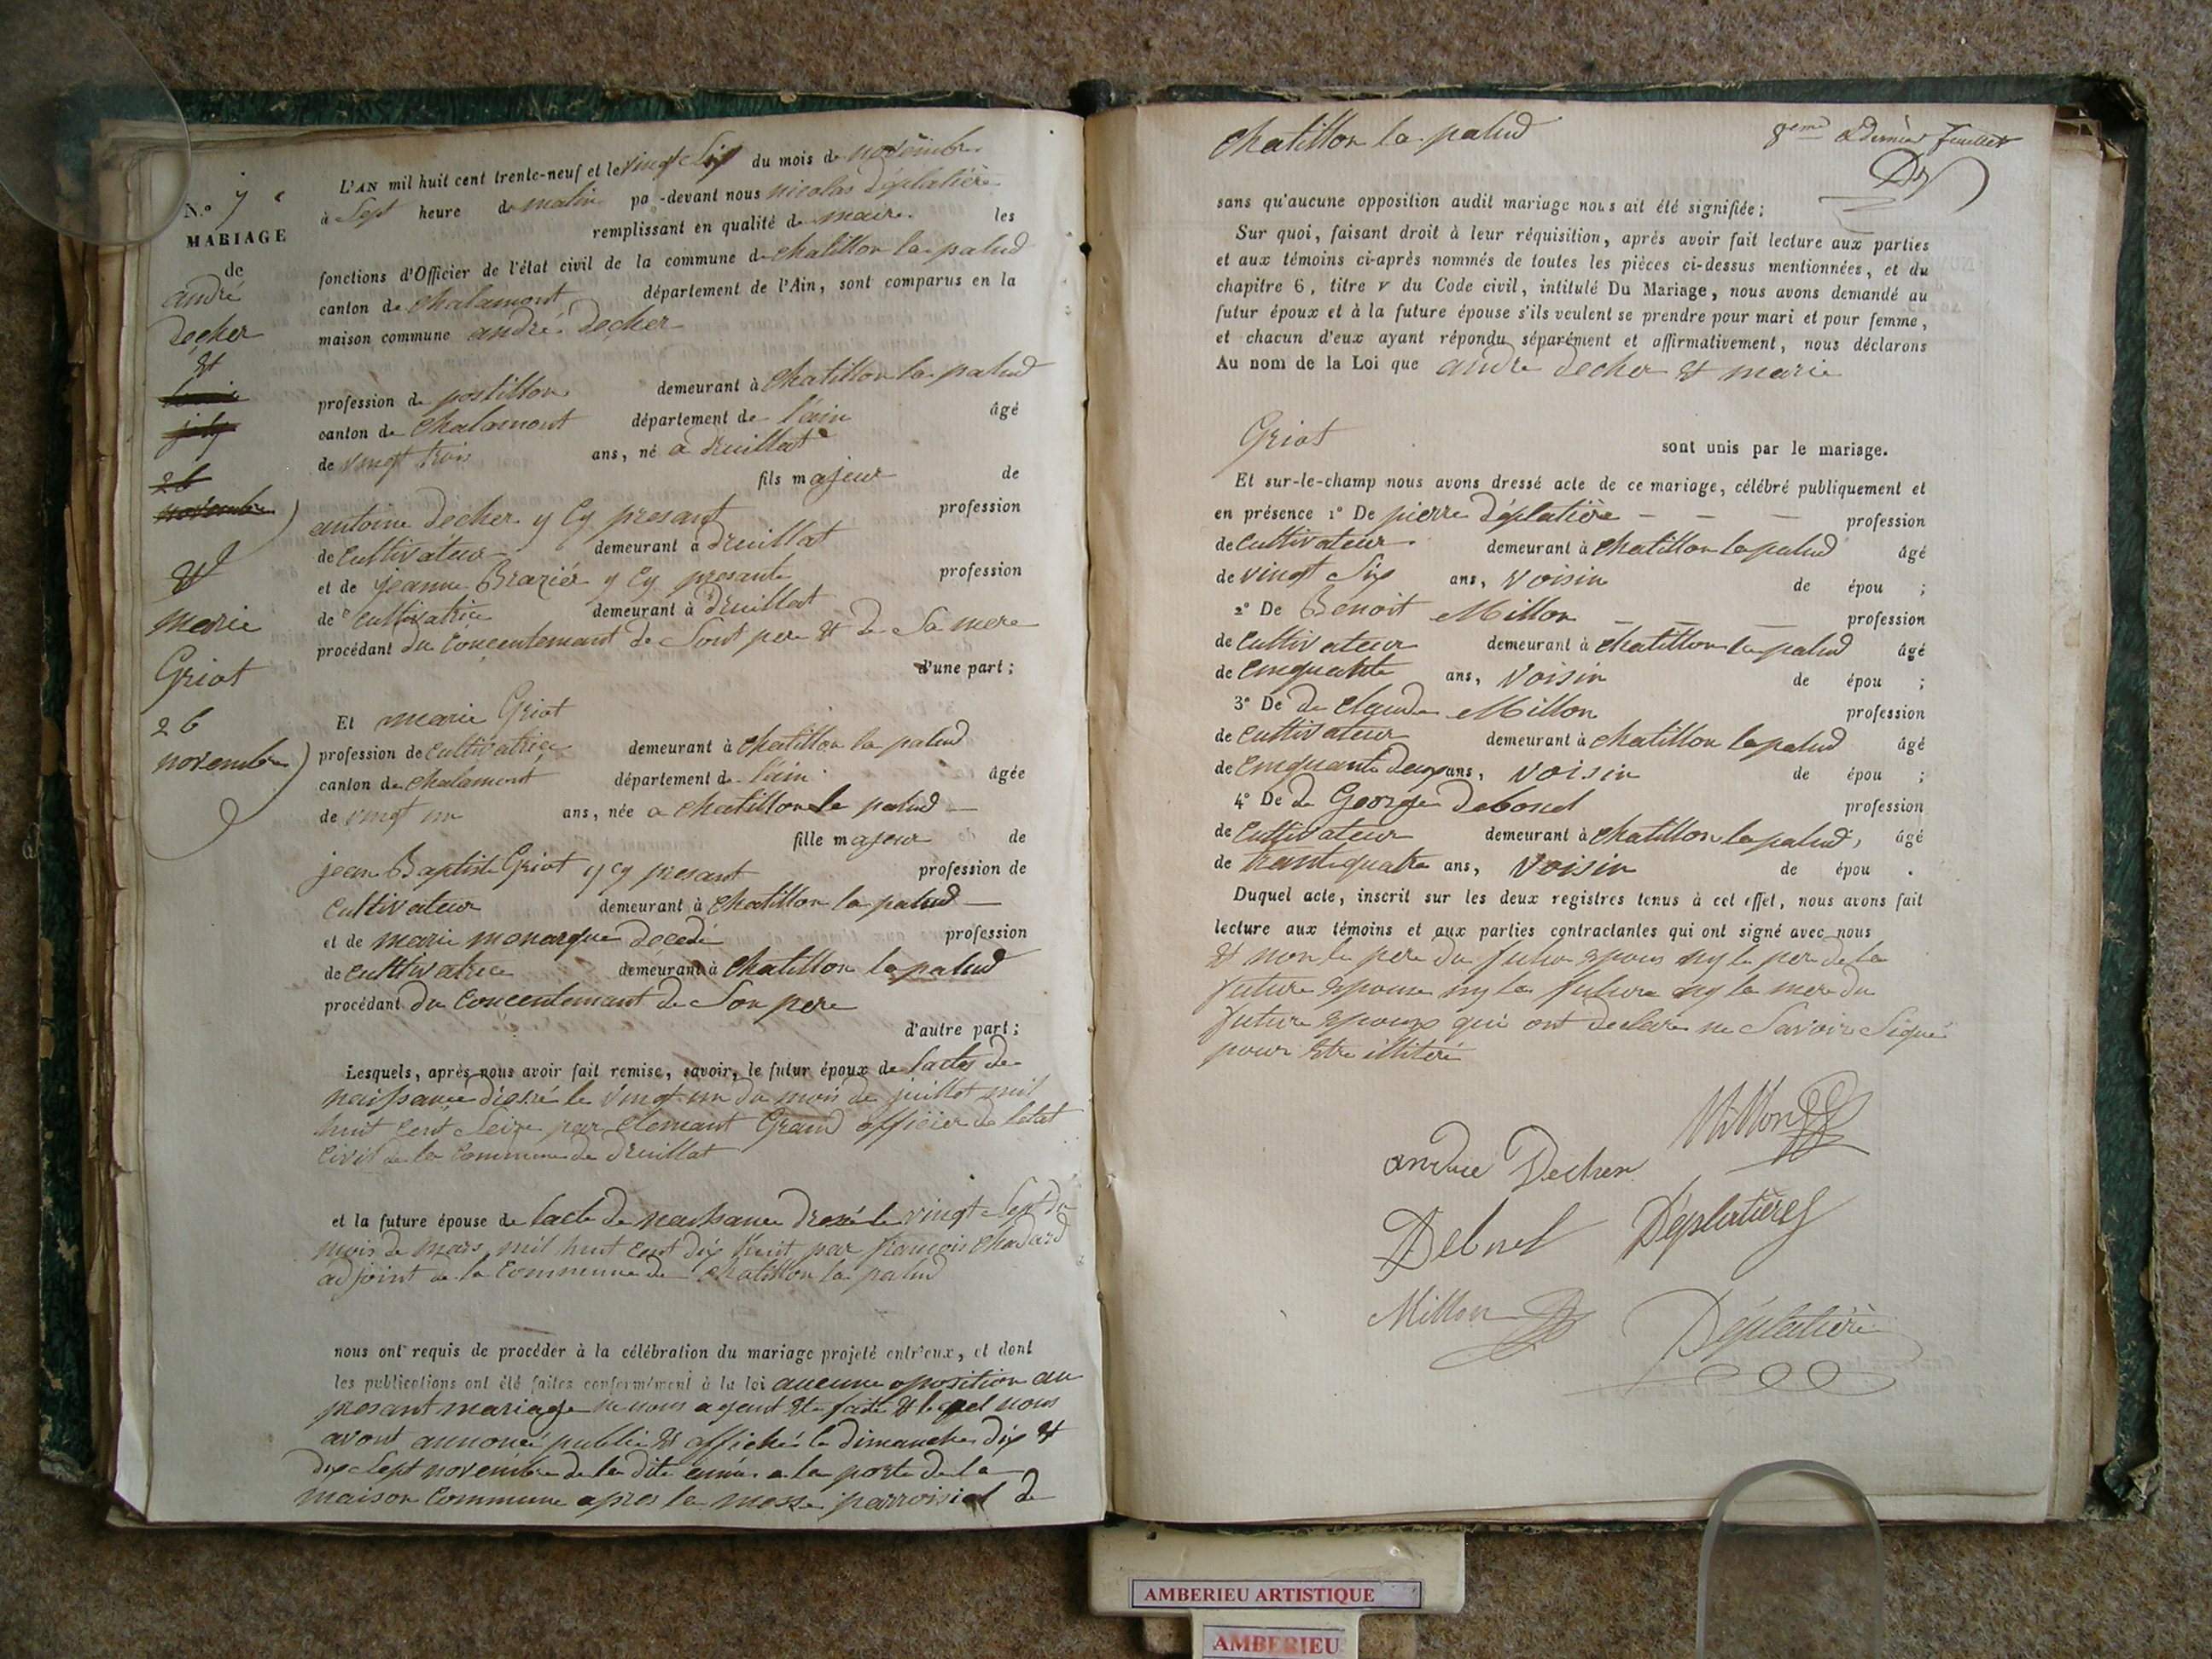 N.o 7
MARIAGE
de
andré
decher
&
26
novembre
&
marie
Griot
26
novembre
L'AN mil huit cent trente-neuf et le vingt Six du mois de novembre
à Sept heure de matin pa -devant nous nicolas déplatière
remplissant en qualité de maire les
fonctions d'Officier de l'état civil de la commune de chatillon la palud
canton de chalamont département de l'Ain, sont comparus en la
maison commune andré decher
profession de postillon demeurant à chatillon la palud
canton de chalamont département de l'ain âgé
de vingt trois ans, né a druillat
fils majeur de
antoine decher y Cy presant profession
de Cultivateur demeurant a druillat
et de jeanne Brazier y Cy presante profession
de Cultivatrice demeurant à druillat
procédant du Concentemant de Sont pere & de Sa mere
d'une part ;
Et marie Griot
profession de Cultivatrice demeurant à chatillon la palud
canton de chalamont département de l'ain âgée
de vingt un ans, née a chatillon la palud
fille majeur de
jean Baptiste Griot y Cy presant profession de
Cultivateur demeurant à chatillon la palud
et de marie monarque décedé profession
de Cultivatrice demeurant à chatillon la palud
procédant du Concentemant de Son pere
d'autre part ;
Lesquels, après nous avoir fait remise, savoir, le futur époux de lactes de
naissance dressé le vingt un du mois de juillet mil
huit Cent Seize par Clemant Grand officier de letat
Civil de la Commune de druillat
et la future épouse de lacte de naissance dressé le vingt Sept du
mois de mars mil huit Cent dix huit par françois
adjoint de la Commune de chatillon la palud
nous ont requis de procéder à la célébration du mariage projeté entr'eux, et dont
les publications ont été faites conformément à la loi aucune oposition au
presant mariage ne nous ayent Ete faite & lequel nous
avont annoncé publié & affiché le dimanche dix &
dix Sept novembre de la dite année a la porte de la
maison Commune apres la messe parroisial de
chatillon la palud 8eme & dernier feuillet
sans qu'aucune opposition audit mariage nous ait été signifiée ;
Sur quoi, faisant droit à leur réquisition, après avoir fait lecture aux parties
et aux témoins ci-après nommés de toutes les pièces ci-dessus mentionnées, et du
chapitre 6, titre v du Code civil, intitulé Du Mariage, nous avons demandé au
futur époux et à la future épouse s'ils veulent se prendre pour mari et pour femme,
et chacun d'eux ayant répondu séparément et affirmativement, nous déclarons
Au nom de la Loi que andré decher & marie
Griot sont unis par le mariage.
Et sur-le-champ nous avons dressé acte de ce mariage, célébré publiquement et
en présence 1° De pierre déplatière profession
de Cultivateur demeurant à chatillon la palud âgé
de vingt Six ans, voisin de épou ;
2° De Benoit Millon profession
de Cultivateur demeurant à chatillon la palud âgé
de Cinquante ans, voisin de épou ;
3° De de claude Millon profession
de Cultivateur demeurant à chatillon la palud âgé
de Cinquante deux ans, voisin de épou ;
4° De de George profession
de Cultivateur demeurant à chatillon la palud, âgé
de trante quatre ans, voisin de épou .
Duquel acte, inscrit sur les deux registres tenus à cet effet, nous avons fait
lecture aux témoins et aux parties contractantes qui ont signé avec nous
& non le pere du futur Epoux ny le pere de la
future Epouse ny la future ny la mere du
future Epoux qui ont declare ne Savoir Signé
pour Etre illiteré
Millon
andre Decher
Déplatière
Millon Déplatière
AMBERIEU ARTISTIQUE
AMBERIEU